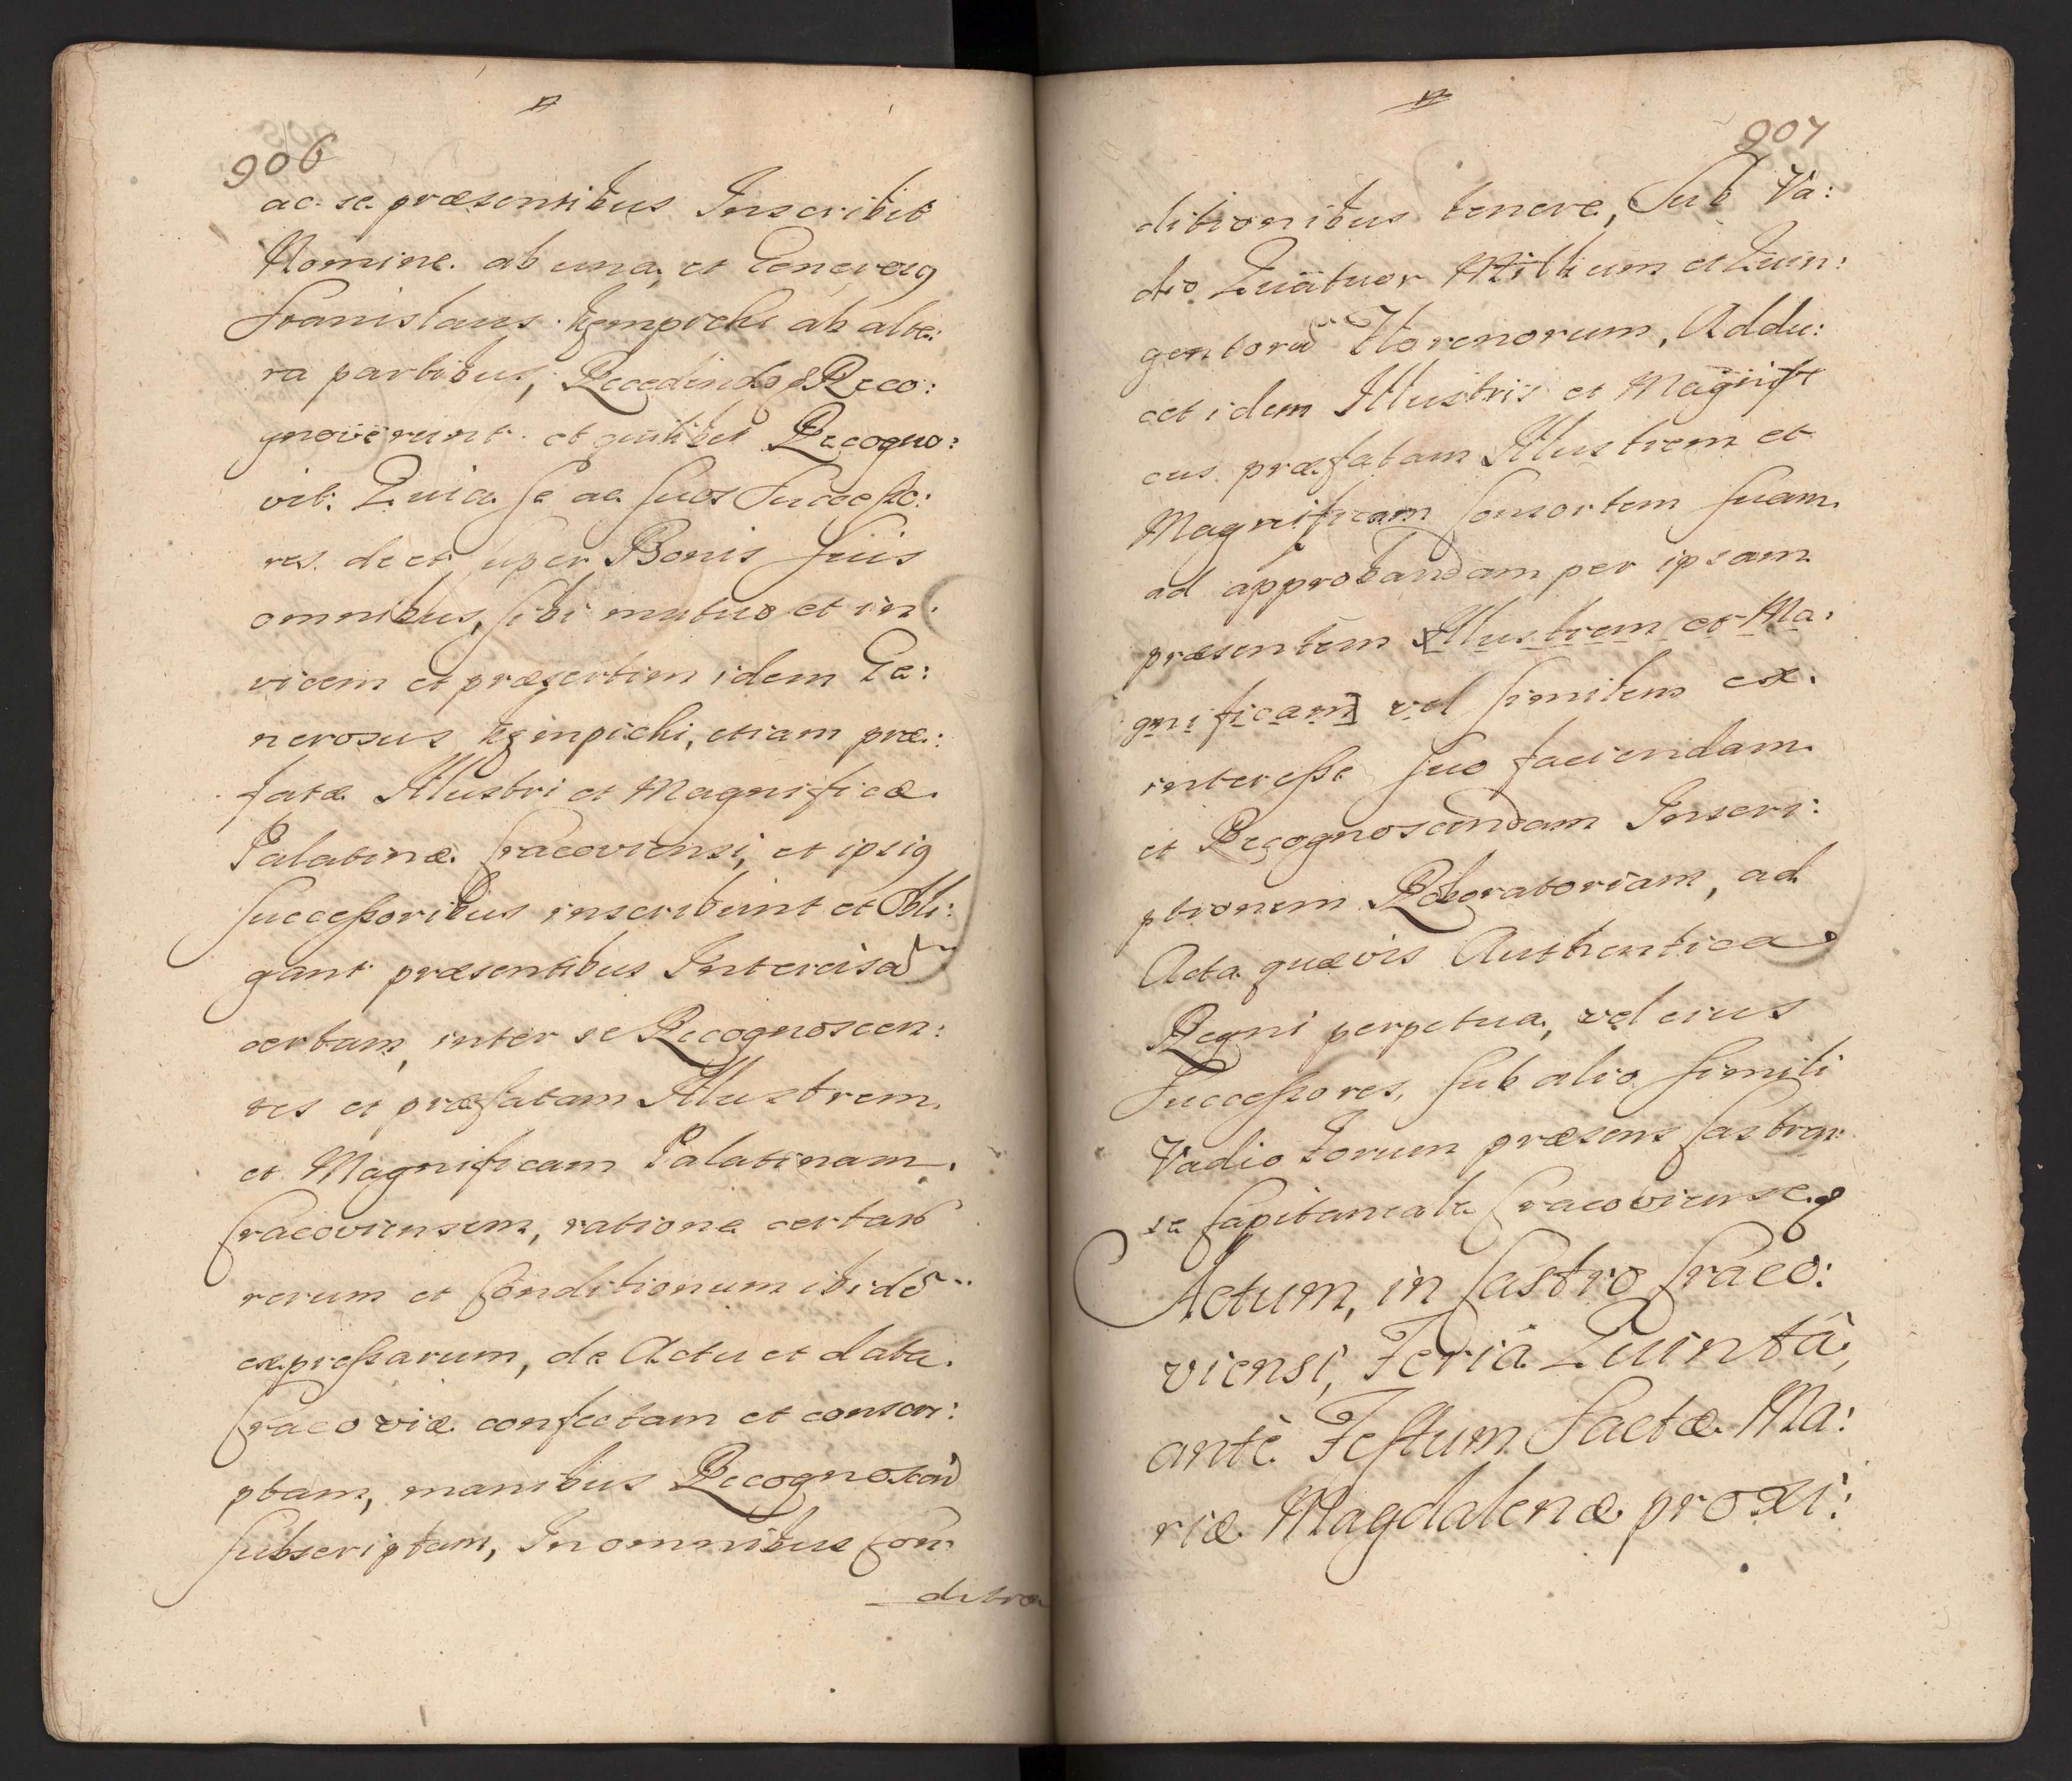 906
ac se præsentibus Inscribit
Nomine ab una, et Generosg
Stanislaus Kempichi ab alte:
ra partibus, Recedendo & Reco:
gnoverunt et quilibet Recogno:
vit. Quia se ac suos Successo:
res de et super Bonis suis
omnibus, sibi mutuo et in:
vicem et præsertim idem Ge:
nerosus Kempichi, etiam præ:
fatæ Illustri et Magnificæ
Palatinæ Cracoviensi, et ipsig
Successoribus inscribunt et Obli:
gant præsentibus Intercisã
certam, inter se Recognoscen:
tes et præfatam Illustrem
et Magnificam Palatinam
Cracoviensem, ratione certarũ
rerum et Conditionum ibidẽ
expressarum, de Actu et data
Cracoviæ confectam et conscri:
ptam, manibus Recognoscen̄
subscriptam, In omnibus Con
ditio
907
ditionibus tenere, Sub Va:
dio Quatuor Millium et Quin:
gentorũ Florenorum, Addu:
cet idem Illustris et Magnifi
cus præfatam Illustrem et
Magnificam Consortem suam
ad approbandam per ipsam
præsentem [Illustrem et Ma:
gnificam] vel similem ex
interesse suo faciendam
et Recognoscendam Inscri:
ptionem Roboratoriam, ad
Acta quævis Authentica
Regni perpetua, vel eius
Successores, sub alio simili
Vadio Forum præsens Castren:
se Capitaneale Cracoviense.
Actum, in Castro Craco:
viensi, Feria Quinta,
ante Festum Sactæ Ma:
riæ Magdalenæ proxi: